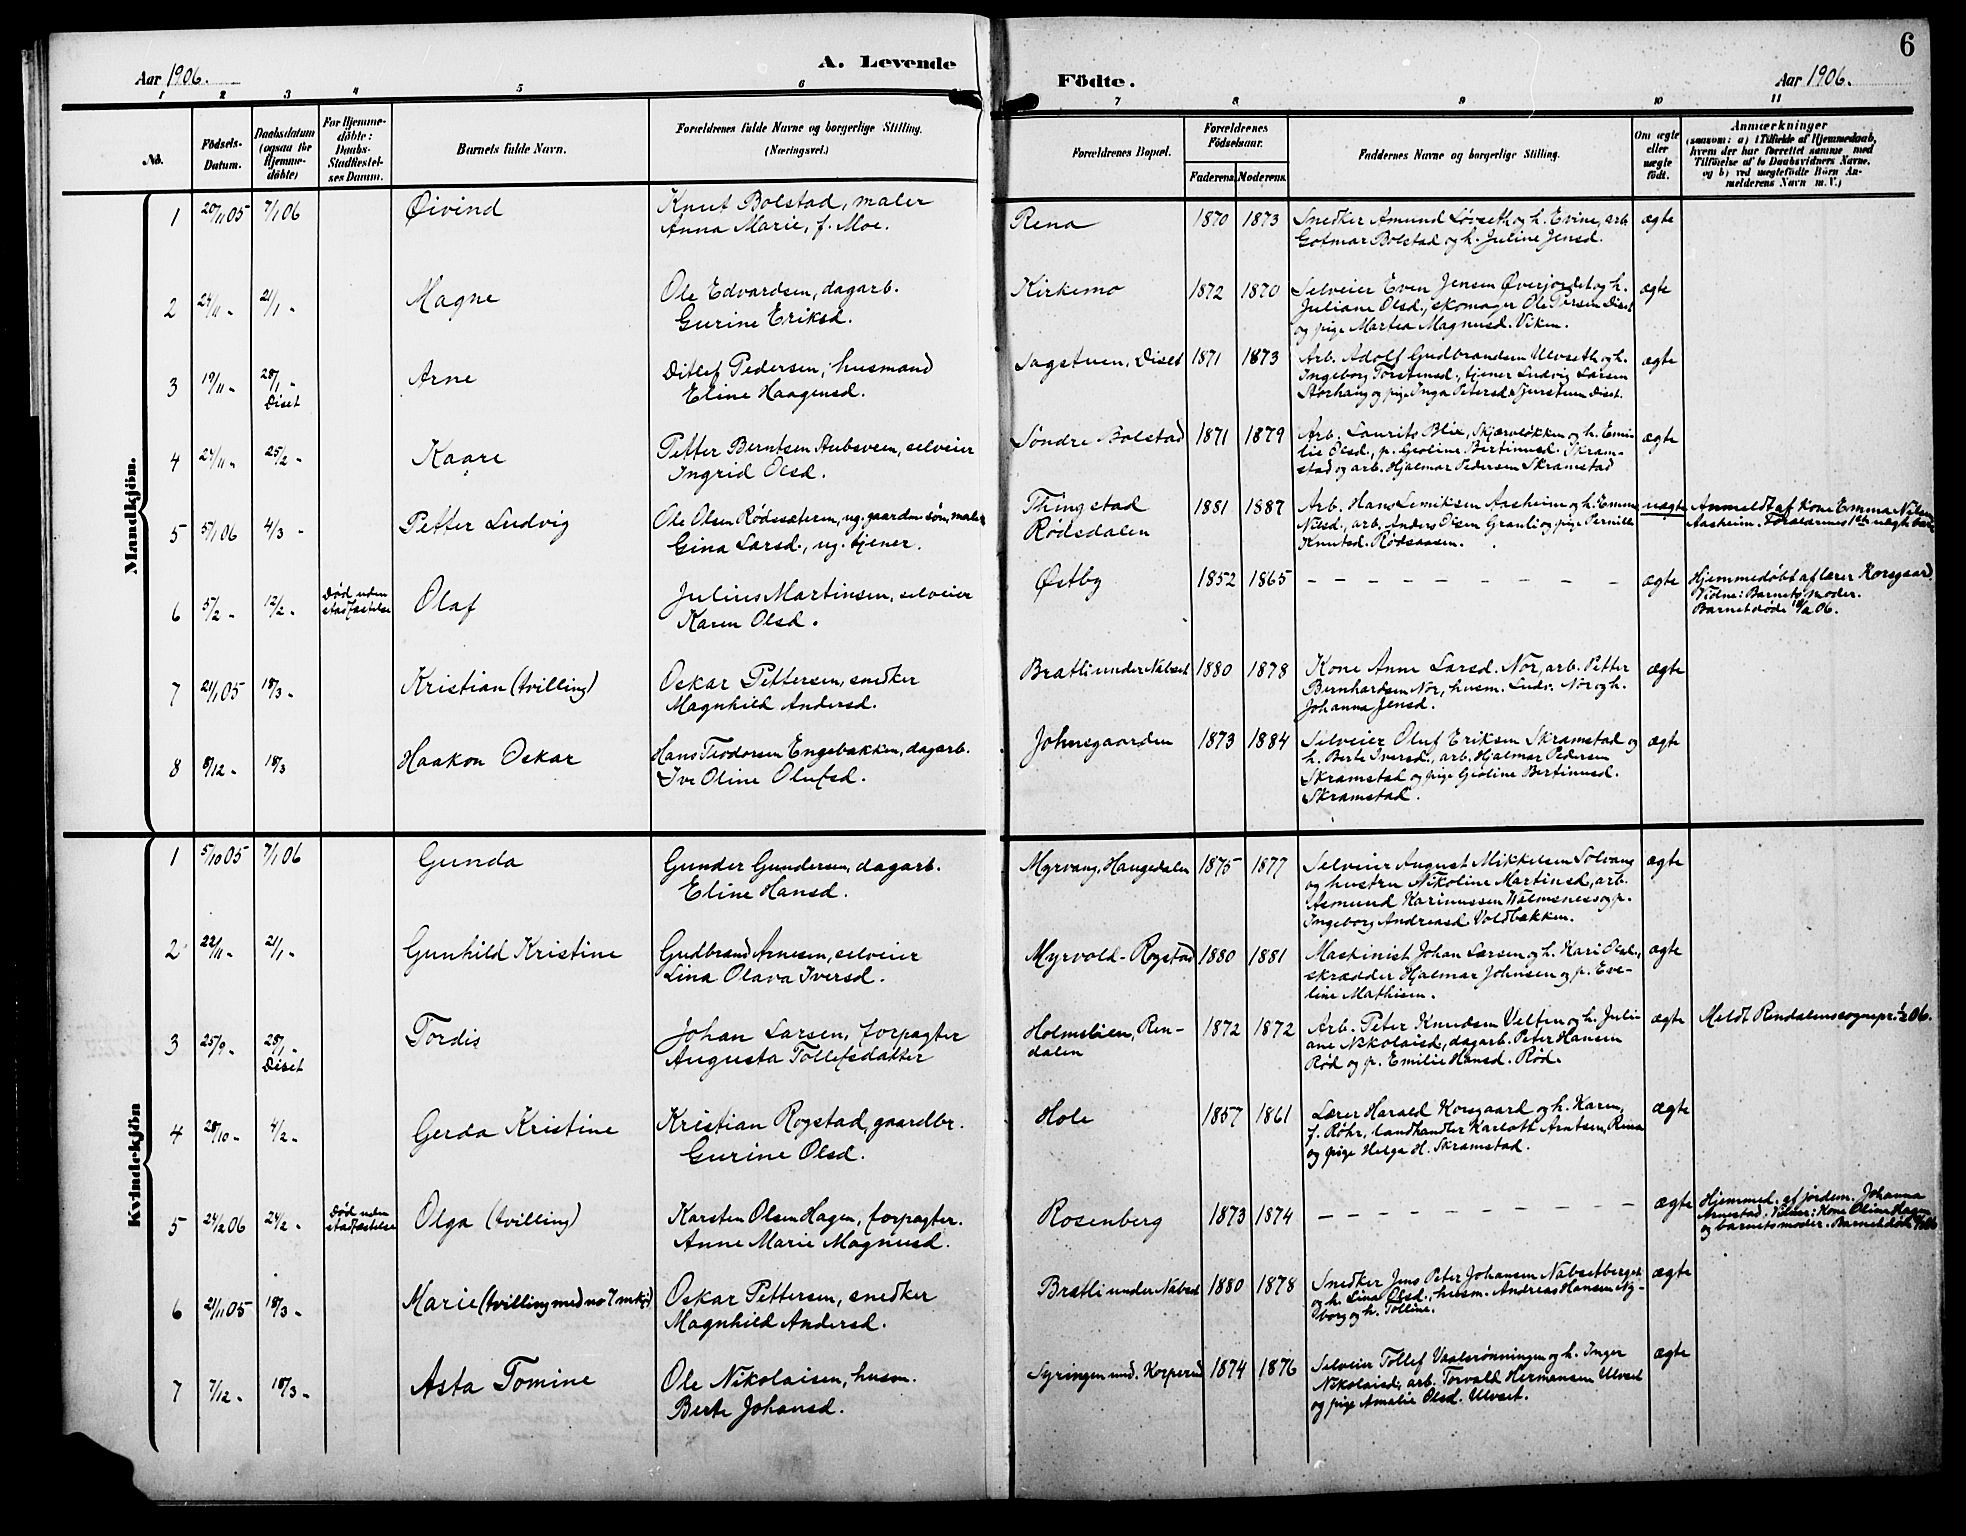 6
Aar 1906.
A. Levende
Födte.
Aar 1906.
1 2 3 4 5 6 7 8 9 10 11
No.
Födsels-
Datum.
Daabsdatum
(ogsaa for
Hjemme-
döbte)
For Hjemme-
döbte:
Daabs-
Stadfæstel-
ses Datum.
Barnets fulde Navn.
Forældrenes fulde Navne og borgerlige Stilling.
(Næringsvei.)
Forældrenes Bopæl.
Forældrenes
Födselsaar.
Faderens. Moderens.
Faddernes Navne og borgerlige Stilling.
Om ægte
eller
uægte
födt.
Anmærkninger
(saasom: a) i Tilfælde af Hjemmedaab,
hvem der har forrettet samme med
Tilföielse af to Daabsvidners Navne,
og b) ved uægtefödte Börn An-
melderens Navn m. V.)
Mandkjön.
1 20/11 05 7/1 06 Øivind Knut Bolstad, maler Rena 1870 1873 Snedker Amund Løvseth og h. Evine, arb. ægte
Anna Marie, f. Moe. Gotmar Bolstad og h. Juline Jensd.
2 24/11 - 21/1 - Magne Ole Edvardsen, dagarb. Kirkemo 1872 1870 Selveier Even Jensen Øverjordet og h. ægte
Gurine Eriksd. Juliane Olsd., skomager Ole Persen Diset
og pige Martea Magnusd. Viken.
3 19/11 - 28/1 - Arne Ditlef Pedersen, husmand Sagstuen, Diset 1871 1873 Arb. Adolf Gudbrandsen Ulvseth og h. ægte
Diset Eline Haagensd. Ingeborg Torstensd., tjener Ludvig Larsen
Storhaug og pige Inga Petersd. Gjerstuen Diset.
4 24/11 - 25/2 - Kaare Petter Berntsen Aubsveen, selveier Søndre Bolstad 1871 1879 Arb. Laurits Blix, Skjærvløkken og h. Emi- ægte
Ingrid Olsd. lie Olsd., p. Geoline Bertinusd. Skram-
stad og arb. Hjalmar Pedersen Skramstad
5 5/1 06 4/3 - Petter Ludvig Ole Olsen Rødssæteren, ug. gaardm søn, maler Thingstad 1881 1887 Arb. Hans Aasheim og h. Emma uægte Anmeldt af kone Emma Nilsen
Gina Larsd., ug. tjener. Rødsdalen Nilsd., arb. Anders Olsen Granli og pige Pernille Aasheim. Forældrenes 1ste uægte barn
Knutsd. Rødsaasen.
6 5/2 - 12/2 - Død uden Olaf Julius Martinsen, selveier Østby 1852 1865 - - - - - - - - - - ægte Hjemmedøbt af lærer Korsgaard.
stadfæstelse Karen Olsd. Vidne: Barnets moder.
Barnet døde 18/2 06.
7 21/11 05 18/3 - Kristian (tvilling) Oskar Pettersen, snedker Bratli under Nabset 1880 1878 Kone Anne Larsd. Nor, arb. Petter ægte
Magnhild Andersd. Bernhardsen Nor, husm. Ludv. Nor og h.
Johanna Jensd.
8 8/12 - 18/3 Haakon Oskar Hans Teodorsen Engebakken, dagarb. Johnsgaarden 1873 1884 Selveier Oluf Eriksen Skramstad og ægte
Ive Oline Olufsd. h. Berte Iversd., arb. Hjalmar Pedersen
Skramstad og pige Geoline Bertinusd.
Skramstad.
Kvindekjön
1 5/10 05 7/1 06 Gunda Gunder Gundersen, dagarb. Myrvang, Haugedalen 1875 1877 Selveier August Mikkelsen Solvang ægte
Eline Hansd. og hustru Nikoline Martinsd, arb.
Asmund Karinussen Walmsnes og p.
Ingeborg Andreasd Voldbækken.
2 22/11 - 21/1 - Gunhild Kristine Gudbrand Arnesen, selveier Myrvold - Rogstad 1880 1881 Maskinist Johan Larsen og h. Kari Olsd., ægte
Lina Olava Iversd. skrædder Hjalmar Johnsen og p. Eve-
line Mathisen.
3 25/9 - 28/1 - Tordis Johan Larsen, forpagter Holmslien, Ren- 1872 1872 Arb. Peter Knudsen Velten og h. Juli- ægte Meldt Rendalens sognepr. 1/2 06.
Diset Augusta Tollefsdatter dalen ane Nikolaisd, dagarb. Peter Hansen
Rød og p. Emilie Hansd. Rød.
4 28/10 - 4/2 - Gerda Kristine Kristian Rogstad, gaardbr. Hole 1857 1861 Lærer Harald Korsgaard og h. Karen, ægte
Gurine Olsd. f. Røhr, landhandler Karlott Arntsen, Rena
og pige Helga H. Skramstad.
5 24/2 06 24/2 - Død uden Olga (tvilling) Karsten Olsen Hagen, forpagter. Rosenberg 1873 1874 - - - - - - - - - ægte Hjemmed. af jordem. Johanna
stadfæstelse Anne Marie Magnusd. Arnestad. Vidner: Kone Oline Hagen
og barnets moder. Barnet døde
6 21/11 05 18/3 - Marie (tvilling med no 7 mkj) Oskar Pettersen, snedker Bratli under Nabset 1880 1878 Snedker Jens Peter Johansen Nabsetberget ægte
Magnhild Andersd. og h. Lina Olsd., husm. Andreas Hansen Ny-
borg og h. Tolline.
7 7/12 - 18/3 - Asta Tomine Ole Nikolaisen, husm. Syringen und. Kopperud 1874 1876 Selveier Tollef Vaalsrønningen og h. Inger ægte
Berte Johansd. Nikolaisd, arb. Torvald Hermansen Ulvset
og pige Amalie Olsd. Ulvset.